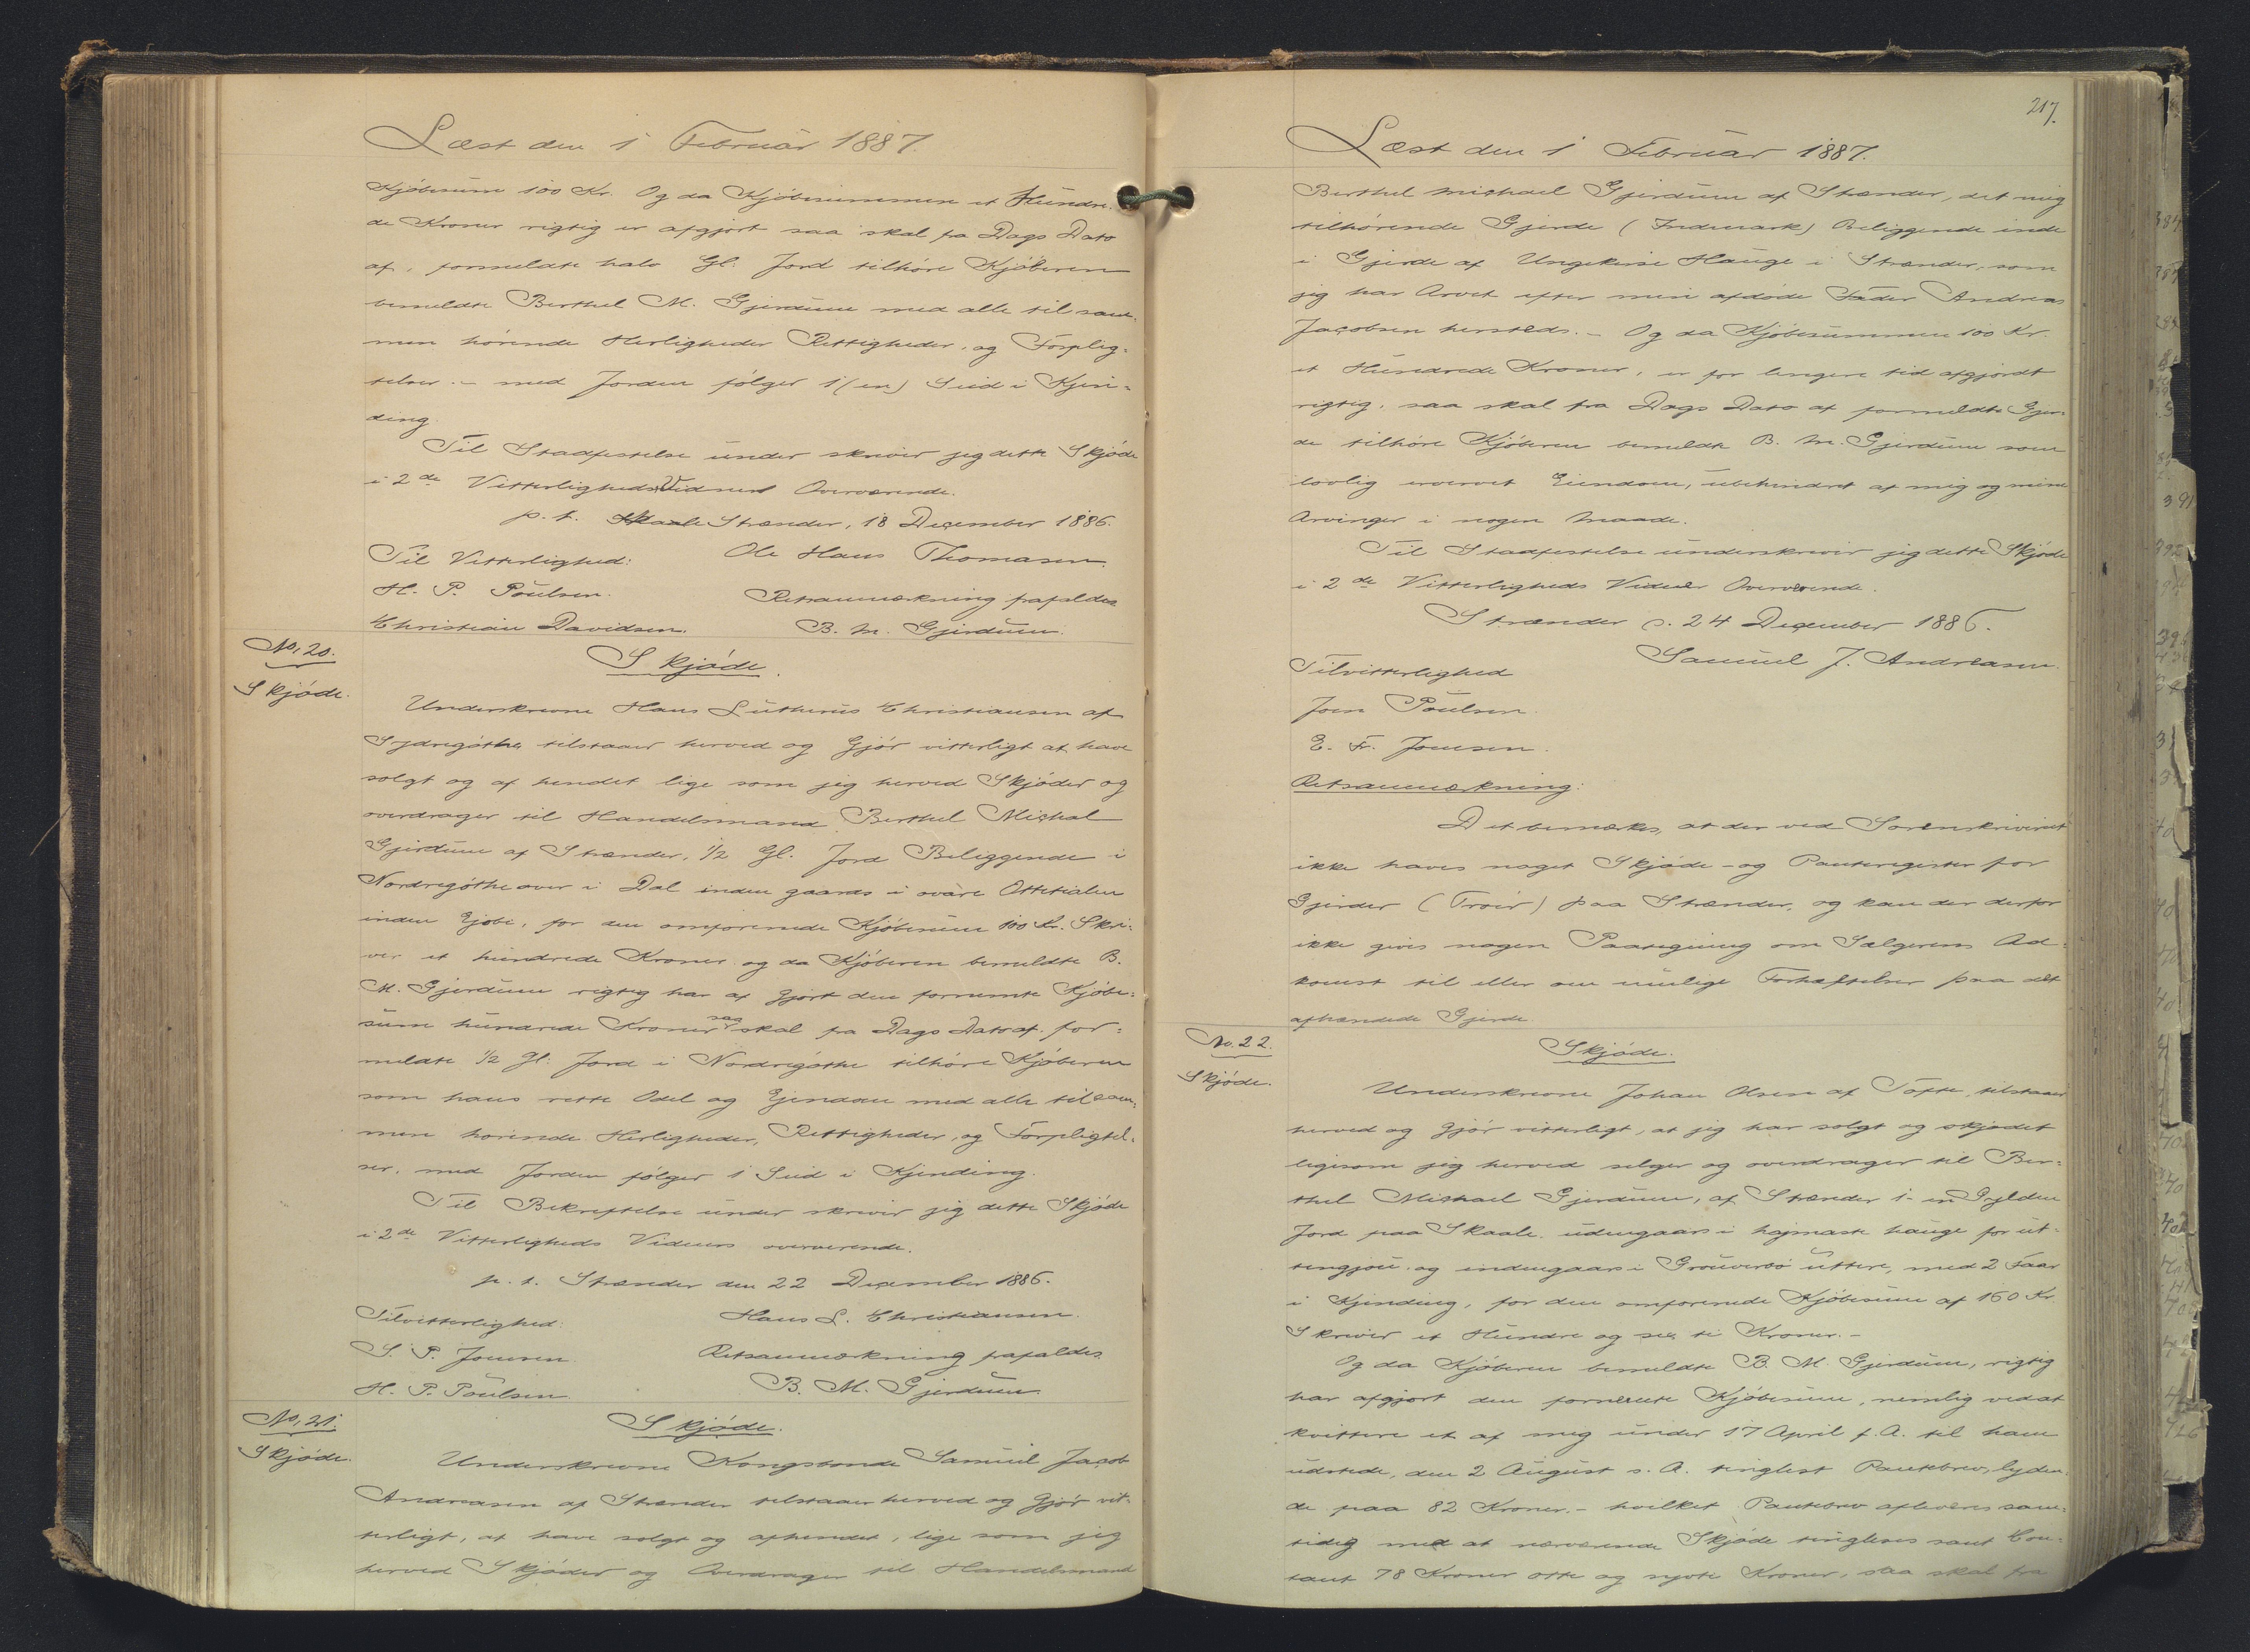 Læst den 1 Februar 1887.
Kjøbesum 100 Kr. Og da Kjøbesummen et Hundre-
de Kroner rigtig er afgjort saa skal fra Dags Dato
af, formeldte halv Gl. Jord tilhøre Kjøberen
bemeldte Berthel M. Gjerdum med alle til sam-
men hørende Herligheder Rettigheder, og Forplig-
telser. – med Jorden følger 1 (en) Sùd i Kjen-
ding.
Til Stadfestelse under skriver jeg dette Skjøde
i 2de Vitterligheds Vidners Overværende.
p. t. Strænder, 18 December 1886.
Til Vitterlighed: Ole Hans Thomasen.
H. P. Poulsen. Retsanmærkning frafaldes
Christian Davidsen. B. M. Gjerdum.
No. 20. Skjøde.
Skjøde.
Underskrevne Hans Lutherus Christiansen af
Sydregøthe tilstaaer herved og Gjør vitterligt at have
solgt og af hendet lige som jeg herved Skjøder og
overdrager til Handelsmand Berthel Michal
Gjerdum af Strænder, 1/2 Gl. Jord Beliggende i
Nordregøthe over i Dal inden gaards i
inden for den omforenede Kjøbesum 100 Kr. Skri-
ver et hundrede Kroner og da Kjøberen bemeldte B.
M. Gjerdum rigtig har af gjort den fornemte Kjøbe-
sum hundrede Kroner saa skal fra Dags Dato af for-
meldte 1/2 Gl. Jord i Nordregøthe tilhøre Kjøberen
som hans rette Odel og Ejendom med alle til sam-
men hørende Herligheder, Rettigheder, og Forpligtel-
ser. med Jorden følger 1 Sùd i Kjending.
Til Bekreftelse under skriver jeg dette Skjøde
i 2de Vitterligheds Vidners oververende.
p. t. Strænder den 22 December 1886.
Tilvitterlighed: Hans L. Christiansen.
S. P. Joensen. Retsanmærkning frafaldes
H. P. Poulsen. B. M. Gjerdum.
No. 21. Skjøde.
Skjøde.
Underskrevne Kongsbonde Samuel Jacob
Andreasen af Strænder tilstaaer herved og Gjør vit-
terligt, at have solgt og afhendet, lige som jeg
herved Skjøder og Overdrager til Handelsmand
217.
Læst den 1 Februar 1887.
Berthel Michael Gjerdum af Strænder, det mig
tilhørende Gjerde (Indmark) Beliggende inde
i Gjerde af Hauge i Strænder, som
jeg har Arvet efter min afdøde Fader Andreas
Jacobsen hersteds. – Og da Kjøbesummen 100 Kr.
et Hundrede Kroner, er for lengere tid afgjordt
rigtig, saa skal fra Dags Dato af formeldte Gjer-
de tilhøre Kjøberen bemeldte B. M. Gjerdum som
lovlig ervervet Eiendom, ubehindret af mig og mine
Arvinger i nogen Maade.
Til Staafestelse underskriver jeg dette Skjøde
i 2de Vitterligheds Vidner Oververende.
Strænder d. 24 December 1886.
Tilvitterlighed Samuel J. Andreasen.
Joen Poulsen.
E. Fr. Joensen.
Retsanmærkning:
Det bemærkes, at der ved Sorenskriveriet
ikke haves noget Skjøde- og Panteregister for
Gjerder (Trøir) paa Strænder, og kan der derfor
ikke gives nogen Paategning om Sælgerens Ad-
komst til eller om mulige Forhæftelser paa det
afhændede Gjerde.
No. 22. Skjøde.
Skjøde.
Underskrevne Johan Olsen af Tofte, tilstaaer
herved og gjør vitterligt, at jeg har solgt og skjødet
ligesom jeg herved selger og overdrager til Ber-
thel Michael Gjerdum, af Strænder 1 - en Gylden
Jord paa Skaale, udengaars i hauge for ut-
og indengaars i uttere, med 2 Faar
i Kjending, for den omforenede Kjøbesum af 160 Kr.
Skriver et Hundre og sex ti Kroner. –
Og da Kjøberen bemeldte B. M. Gjerdum, rigtig
har afgjort den fornevnte Kjøbesum, nemlig ved at
kvittere et af mig under 17 April f. A. til ham
udstede, den 2 August s. A. tinglest Pantebrev, lyden-
de paa 82 Kroner. – hvilket Pantebrev afleveres sam-
tidig med at nærværende Skjøde tinglyses samt Con-
tant 78 Kroner otte og syvti Kroner, saa skal fra